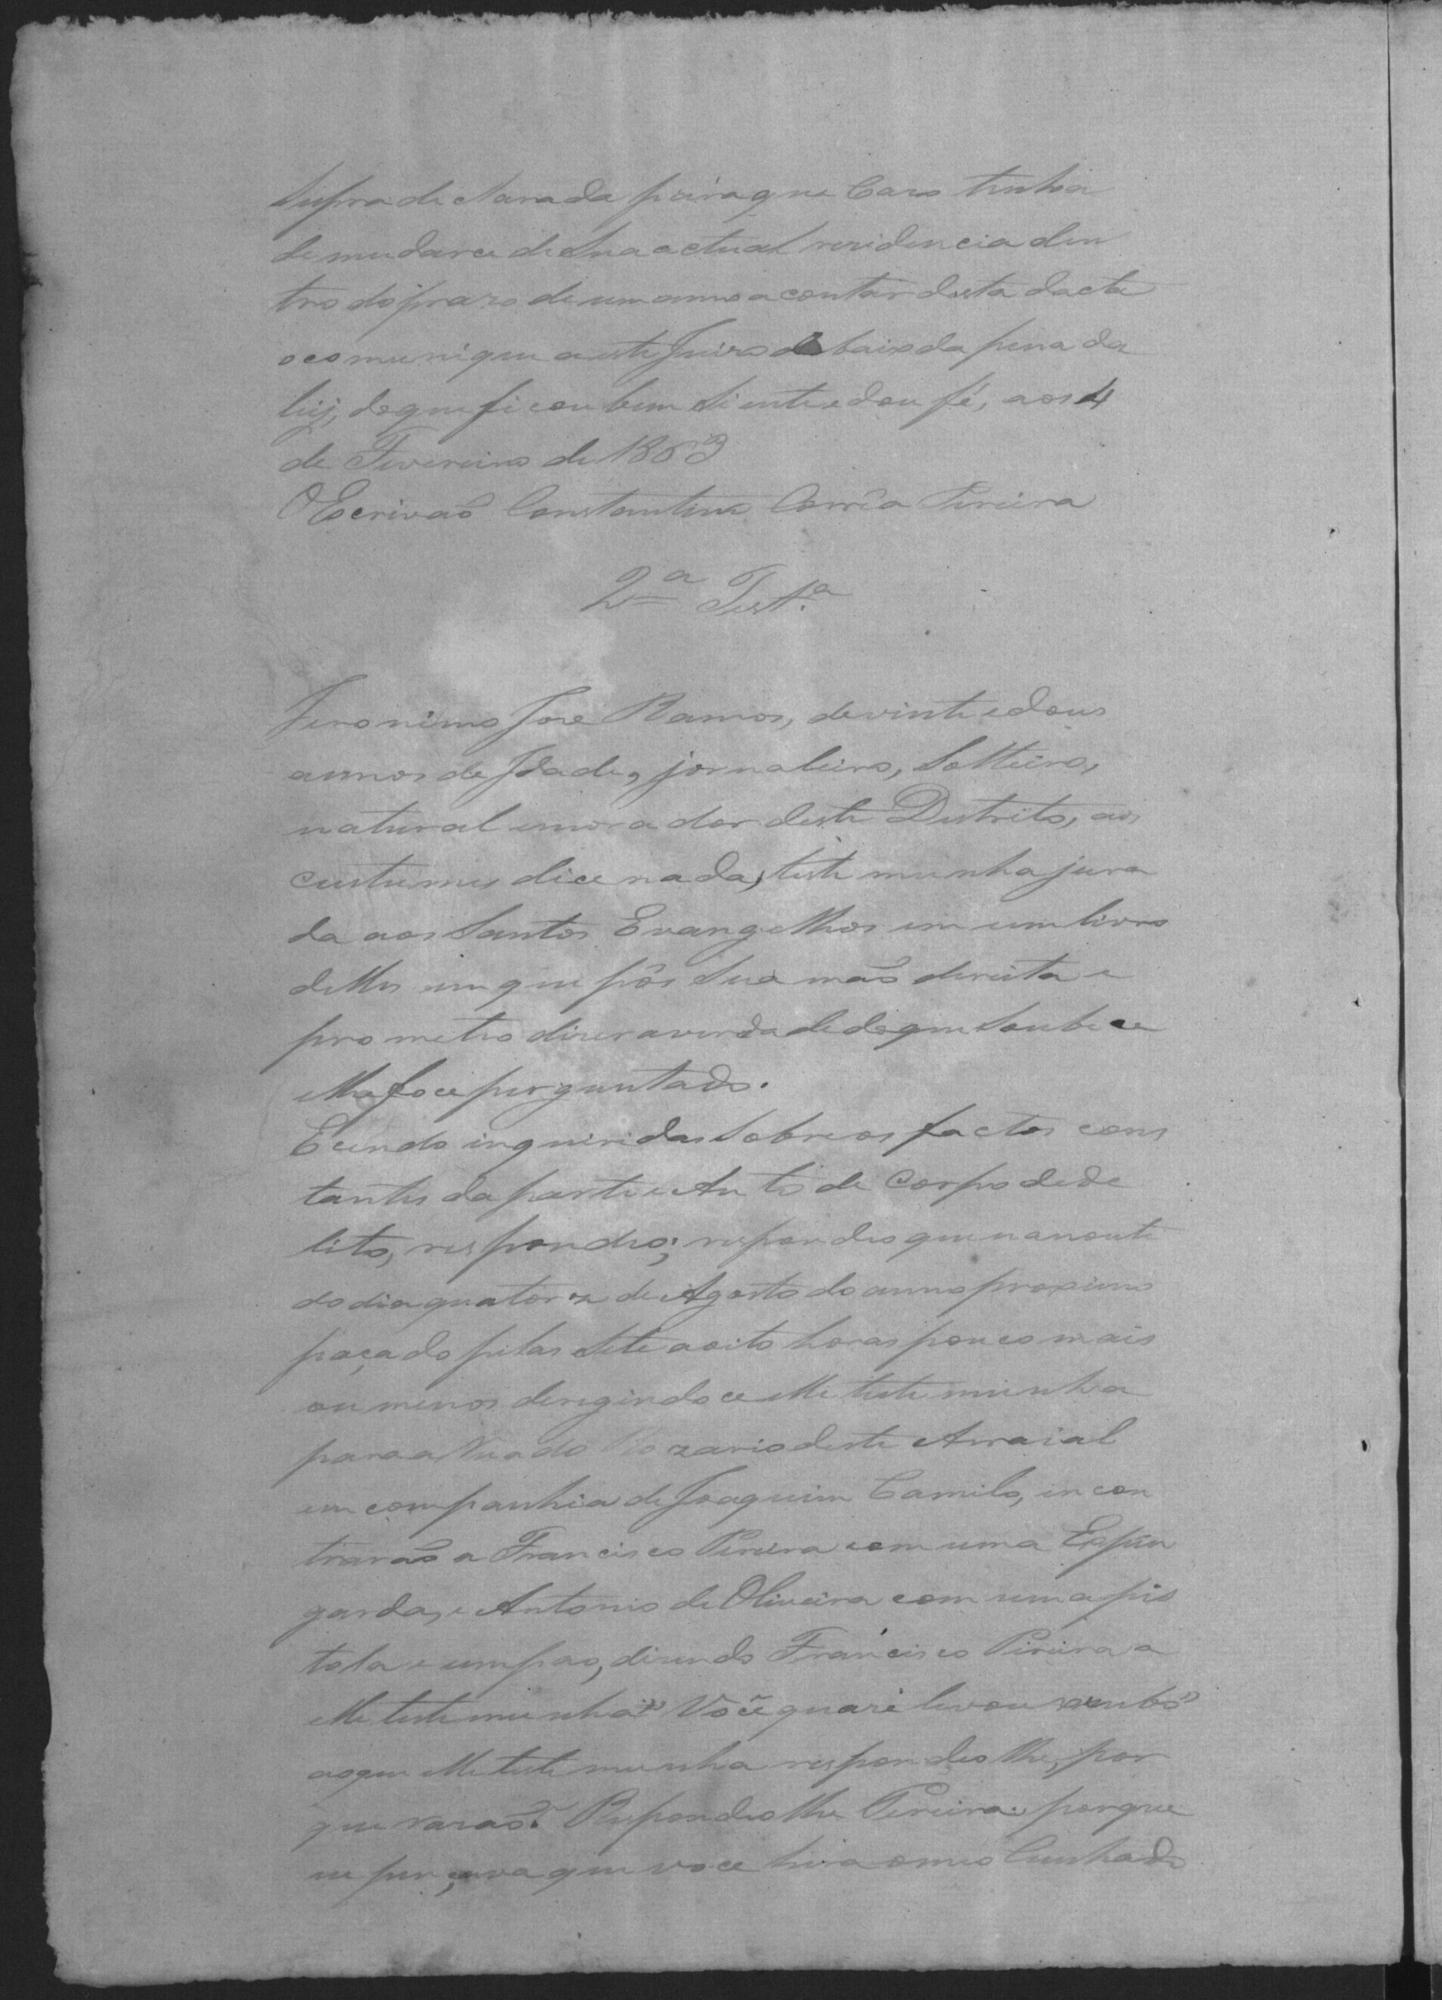 Supra declarada para que Caso tenha
de mudarce de Sua actual rezidencia den
tro do prazo de um anno a contar desta dacta
o comunique a este Juizo debaixo da pena da
lei, do que ficou bem Siente e dou fé, aos 4
de Fevereiro de 1863
O Escrivaõ Constantino Corrêa Pereira
2ª Test.ª
Jeronimo Jose Ramos, de vinte e dous
annos de Idade, jornaleiro, Solteiro,
natural e morador deste Destrito, aos
custumes dice nada, testemunha jura
da aos Santos Evangelhos em um livro
delles em que pôs Sua maõ dereita e
prometeo dizer a verdade do que Soubece
e lhe foce perguntado.
E cendo inquirida Sobre os factos cons
tantes da parte e Auto de Corpo de de
lito, respondeo; respondeo que na noute
do dia quatorze de Agosto do anno proximo
paçado pelas Sete a oito horas pouco mais
ou menos deregindoce elle testemunha
para a Rua do Rozario deste Arraial
em companhia de Joaquim Camilo, incon
traraõ a Francisco Pereira com uma Espin
garda, e Antonio de Oliveira com uma pis
tola e um pao, dizendo Francisco Pereira a
elle testemunha" Você quaze levou
ao que elle testemunha respondeo lhe, por
que razaõ? Respondeo lhe Pereira: porque
eu pençava que voce hera o meo Cunhado